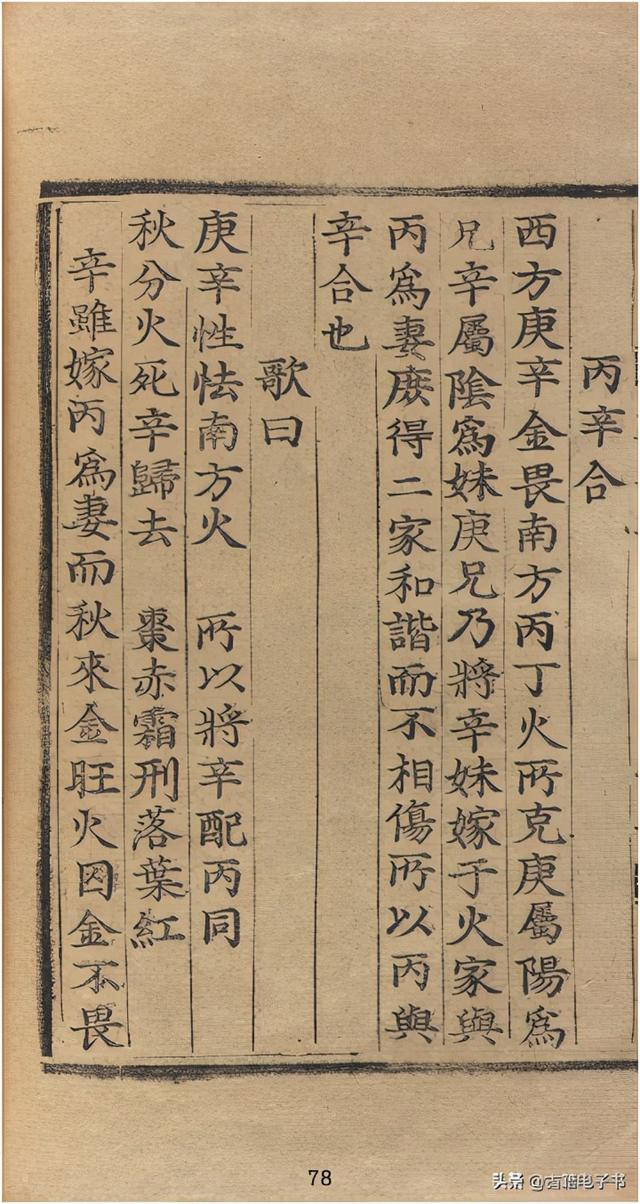 丙辛合
西方庚辛金畏南方丙丁火所克庚屬陽爲
兄辛屬陰爲妹庚兄乃將辛妹嫁于火家與
丙爲妻庶得二家和諧而不相傷所以丙與
辛合也
歌曰
庚辛性怯南方火 所以將辛配丙同
秋分火死辛歸去 棗赤霜刑落葉紅
辛雖嫁丙爲妻而秋來金旺火囚金不畏
78
头条 @有猫电子书